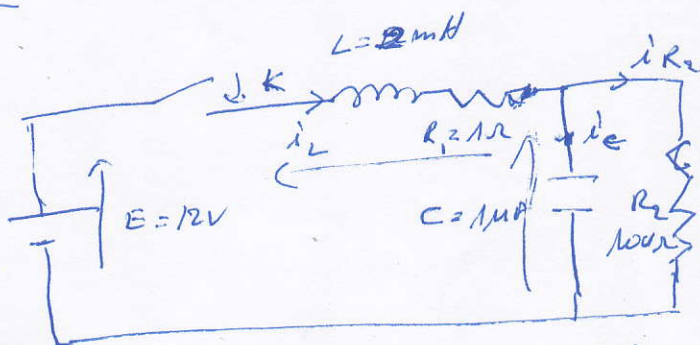 L = 2mH
K
iL
R1 = 1Ω
iR2
ic
E = 12V
C = 1µF
R2
100Ω